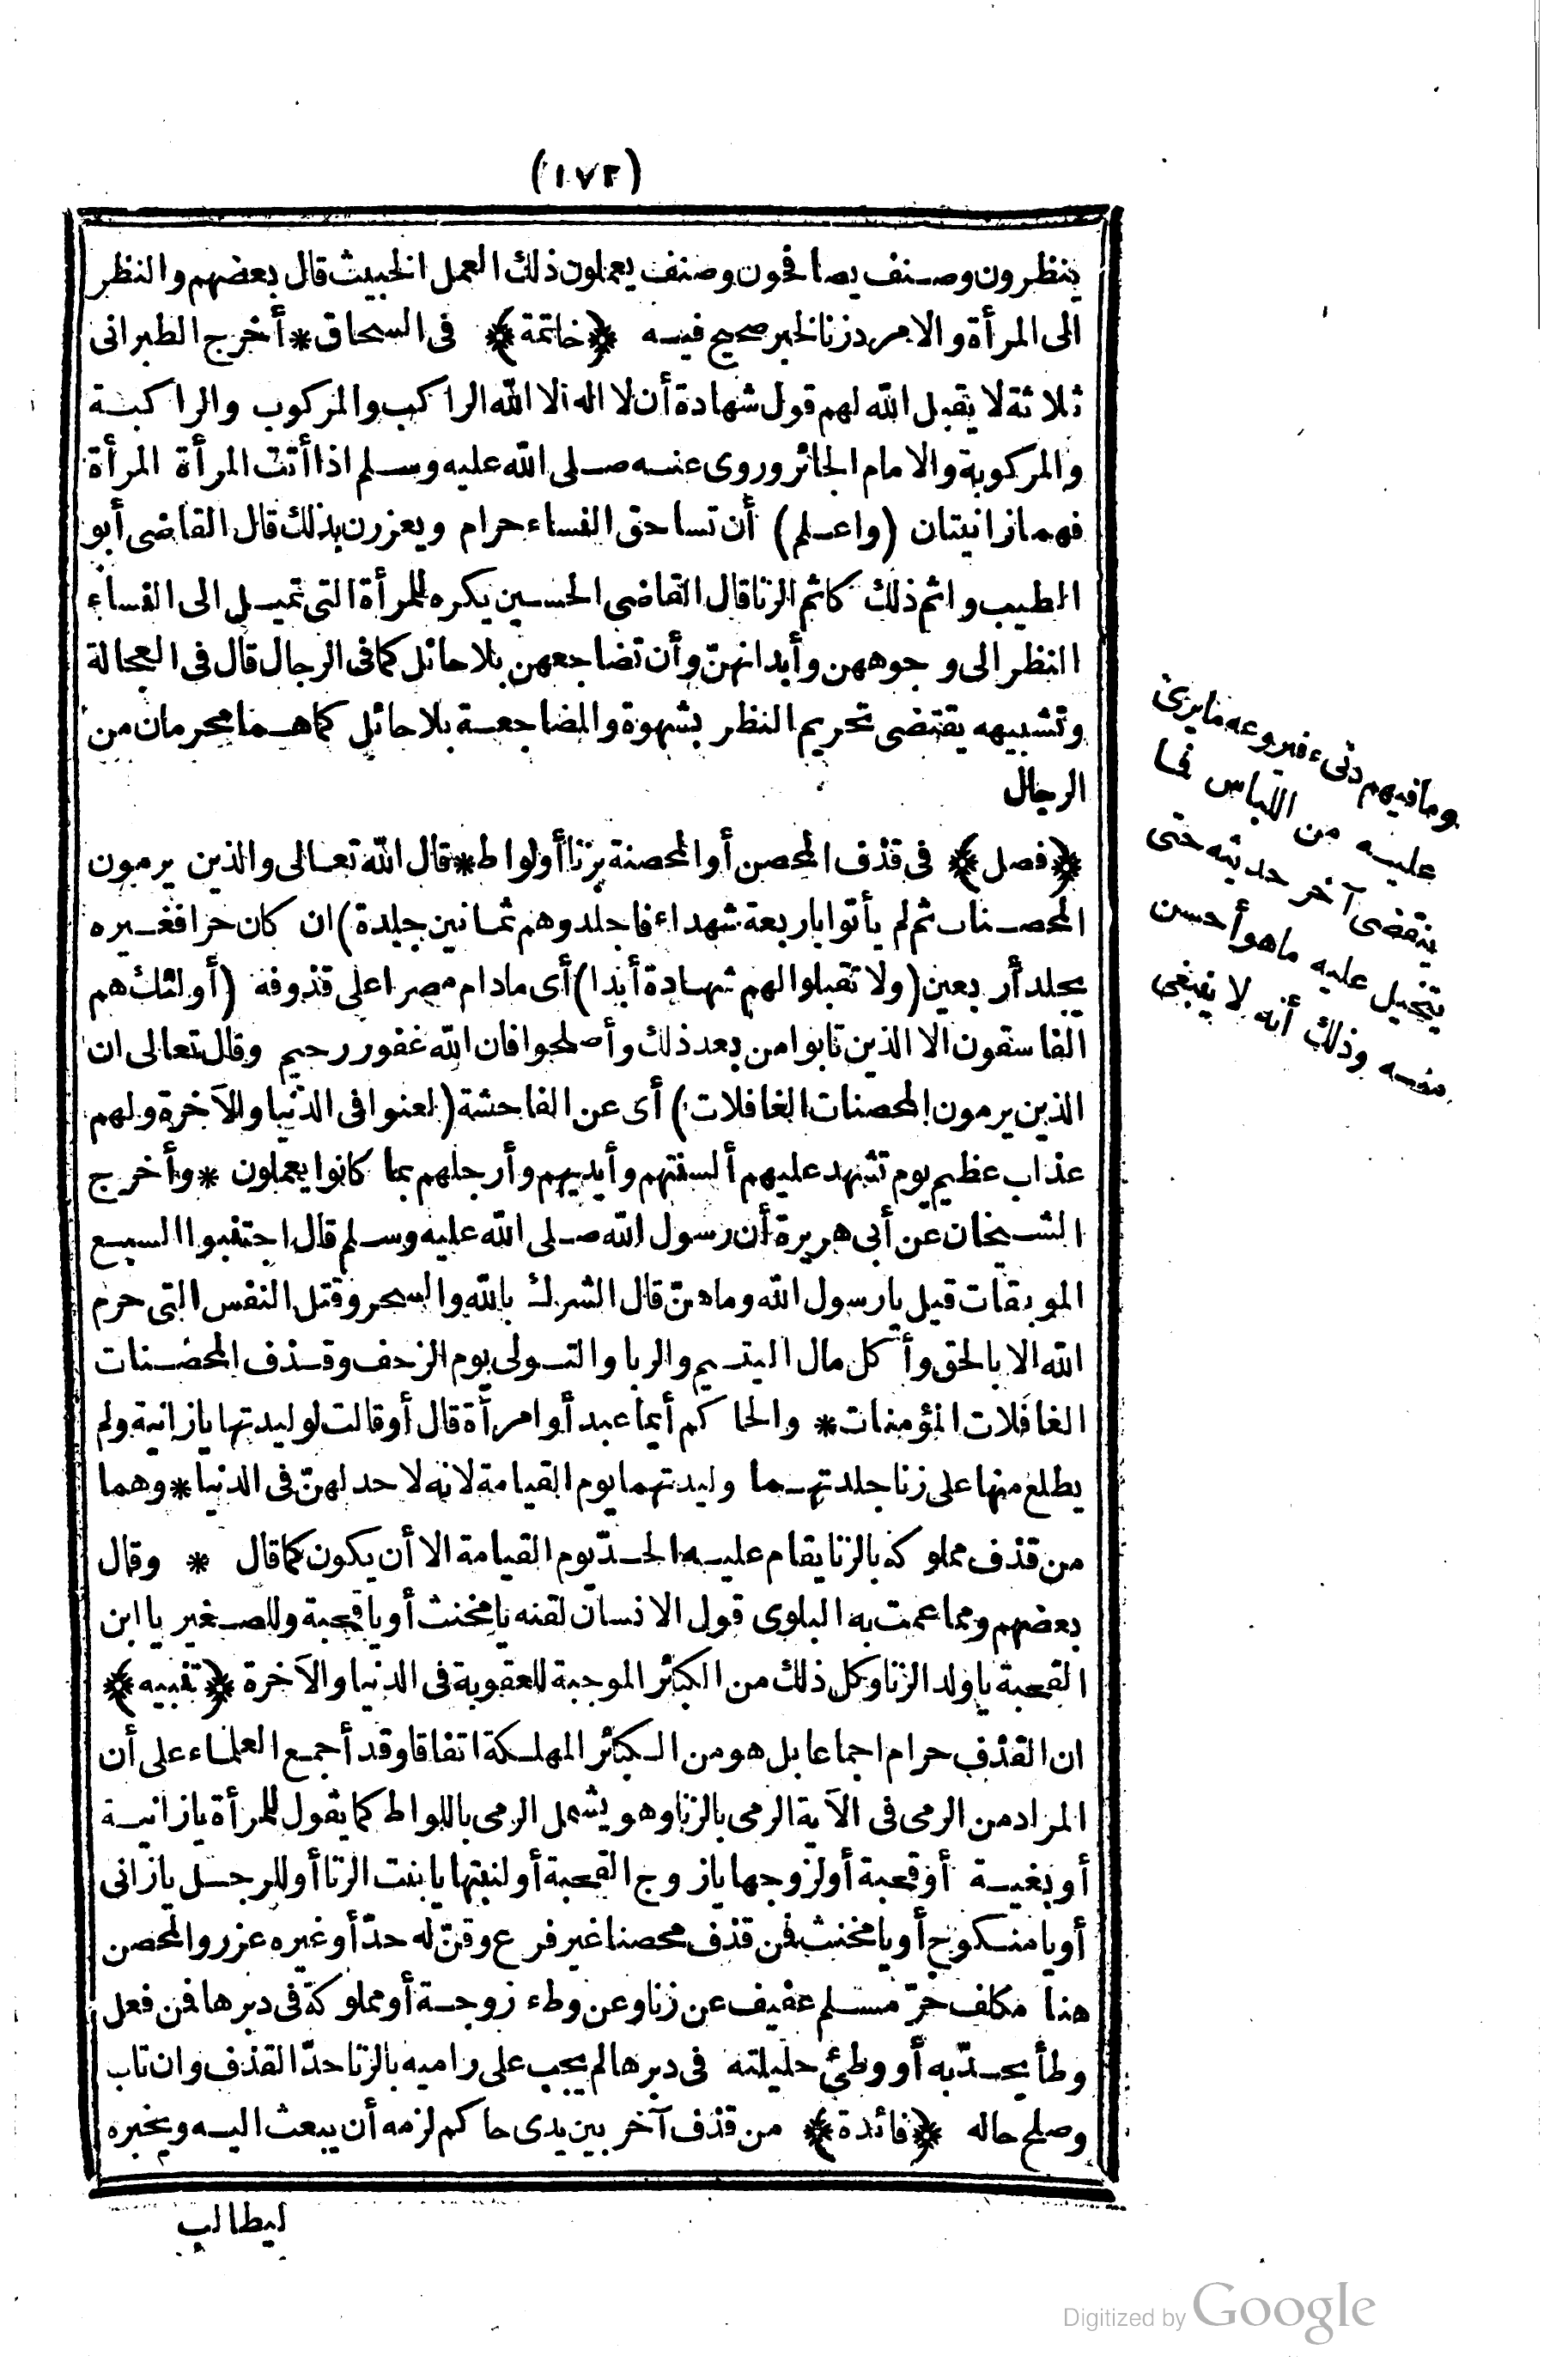 (١٧٢)
ينظرون وصنف يصافحون وصنف يعملون ذلك العمل الخبيث قال بعضهم والنظر
الى المرأة والامرد زنا لخبر صحيح فيه ﴿خاتمة﴾ فى السحاق * أخرج الطبرانى
ثلاثة لا يقبل الله لهم قول شهادة أن لا اله الا الله الراكب والمركوب والراكبة
والمركوبة والامام الجائر وروى عنه صلى الله عليه وسلم اذا أتت المرأة المرأة
فهما زانيتان (واعلم) أن تساحق النساء حرام ويعزرن بذلك قال القاضى أبو
الطيب واثم ذلك كاثم الزنا قال القاضى الحسين يكره للمرأة التى تميل الى النساء
النظر الى وجوههن وأبدانهنّ وأن تضاجعهن بلا حائل كما فى الرجال قال فى العجالة
وتشبيهه يقتضى تحريم النظر بشهوة والمضاجعة بلا حائل كما هما محرمان من
الرجال
﴿فصل﴾ فى قذف المحصن أو المحصنة بزنا أو لواط * قال الله تعالى والذين يرمون
المحصنات ثم لم يأتوا باربعة شهداء فاجلدوهم ثمانين جلدة) ان كان حرا فغيره
يجلد أربعين (ولا تقبلوا لهم شهادة أبدا) أى مادام مصرا على قذوفه (أولئك هم
الفاسقون الا الذين تابوا من بعد ذلك وأصلحوا فان الله غفور رحيم وقال تعالى ان
الذين يرمون المحصنات الغافلات) أى عن الفاحشة (لعنوا فى الدنيا والآخرة ولهم
عذاب عظيم يوم تشهد عليهم ألسنتهم وأيديهم وأرجلهم بما كانوا يعملون * وأخرج
الشيخان عن أبى هريرة أن رسول الله صلى الله عليه وسلم قال اجتنبوا السبع
الموبقات قيل يا رسول الله وما هنّ قال الشرك بالله والسحر وقتل النفس التى حرم
الله الا بالحق وأكل مال اليتيم والربا والتولى يوم الزحف وقذف المحصنات
الغافلات المؤمنات * والحاكم أيما عبد أو امرأة قال أو قالت لوليدتها يا زانية ولم
يطلع منها على زنا جلدتهما وليدتهما يوم القيامة لانه لا حد لهنّ فى الدنيا * وهما
من قذف مملوكه بالزنا يقام عليه الحدّ يوم القيامة الا أن يكون كما قال * وقال
بعضهم ومما عمت به البلوى قول الانسان لقنه يا مخنث أو يا قحبة وللصغير يا ابن
القحبة يا ولد الزنا وكل ذلك من الكبائر الموجبة للعقوبة فى الدنيا والآخرة ﴿تنبيه﴾
ان القذف حرام اجماعا بل هو من الكبائر المهلكة اتفاقا وقد أجمع العلماء على أن
المراد من الرمى فى الآية الرمى بالزنا وهو يشمل الرمى باللواط كما يقول للمرأة يا زانية
أو بغية أو قحبة أو لزوجها يا زوج القحبة أو لبنتها يا بنت الزنا أو للرجل يا زانى
أو يا منكوح أو يا مخنث فمن قذف محصنا غير فرع وقنّ له حدّ أو غيره عزر والمحصن
هنا مكلف حرّ مسلم عفيف عن زنا وعن وطء زوجة أو مملوكة فى دبرها فمن فعل
وطأ يحدّ به أو وطئ حليلته فى دبرها لم يجب على راميه بالزنا حدّ القذف وان تاب
وصلح حاله ﴿فائدة﴾ من قذف آخر بين يدى حاكم لزمه أن يبعث اليه ويخبره
ليطالب
وما فيهم دنىء فيروعه ما يرى
عليه من اللباس فما
ينقضى آخر حديثه حتى
يتخيل عليه ما هو أحسن
منه وذلك أنه لا ينبغى
Digitized by Google